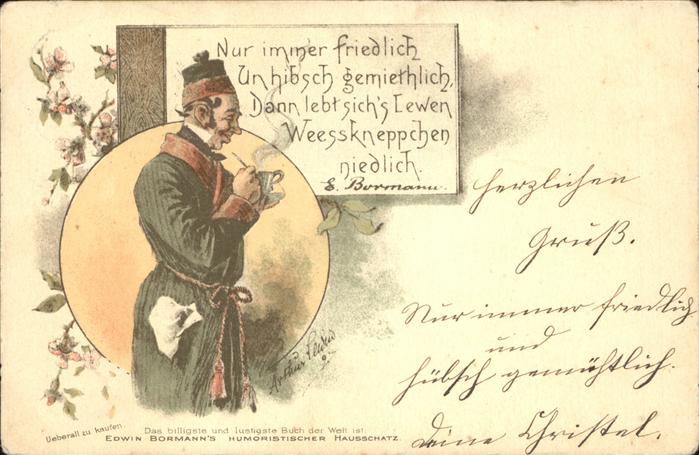 Nur immer friedlich
Un hibsch gemiethlich,
Dann lebt sich's Lewen
Weesskneppchen
niedlich.
E. Bormann.
herzlichen
Gruß.
Nur immer friedlig
und
hübsch gemühtlich.
Deine Christel.
Arthur Lewin
Ueberall zu kaufen.
Das billigste und lustigste Buch der Welt ist:
EDWIN BORMANN'S HUMORISTISCHER HAUSSCHATZ.